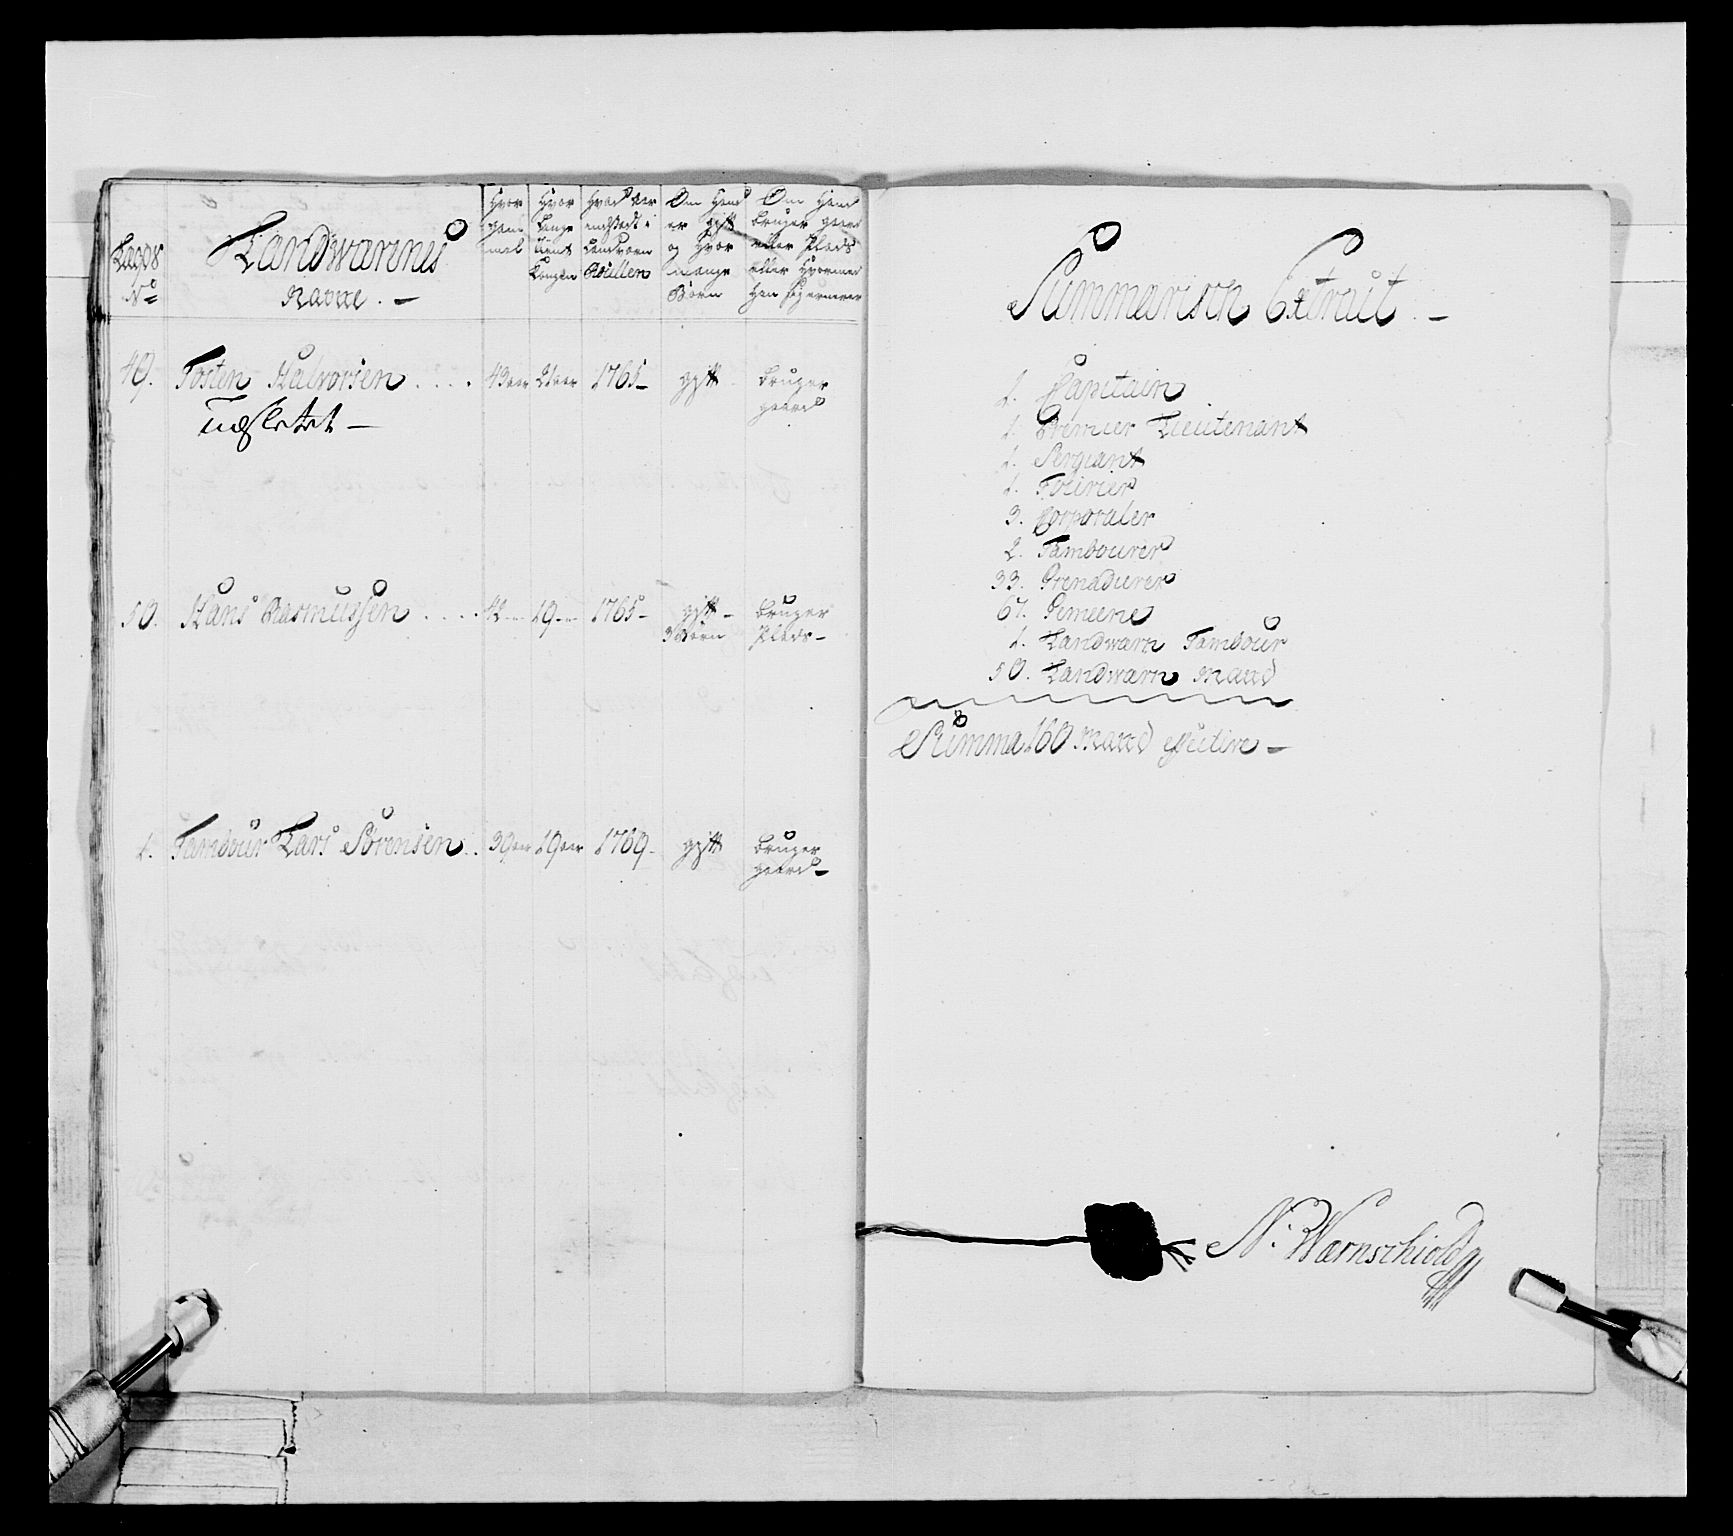 Lægds
No
Landwarnus
Navne. -
Hvor
gam-
mel
Hvor
Længe
tient
Kongen
Hvad Aar
indsadt i
Landvorn
Rullen
Om Hand
er gift
og Hvor
mange
Børn
Om Hand
bruger gaard
eller Plads
eller Hvormed
Han sig ernærer
49. Tosten Halvorsen . . . . 43 aar 21 aar 1765 - gift bruger
gaard
Udslettet -
50. Hans Rasmussen . . . . 42 - 19 - 1765 - gift - bruger
3 Børn Plads -
1. Tambour Lars Sørensen . . 39 aar 19 aar 1769 - gift bruger
gaard -
Summarisch Extrait . -
1. Capitain
1. Premier Lieutenant
1. Sergiant
1. Fourier
3. Corporaler
2. Tambourer
33. Grenaderer
67. Gemeene
1. Landwarn Tambour
50. Landwarn Mand
Summa 160 Mand effective -
N: Warnschiold